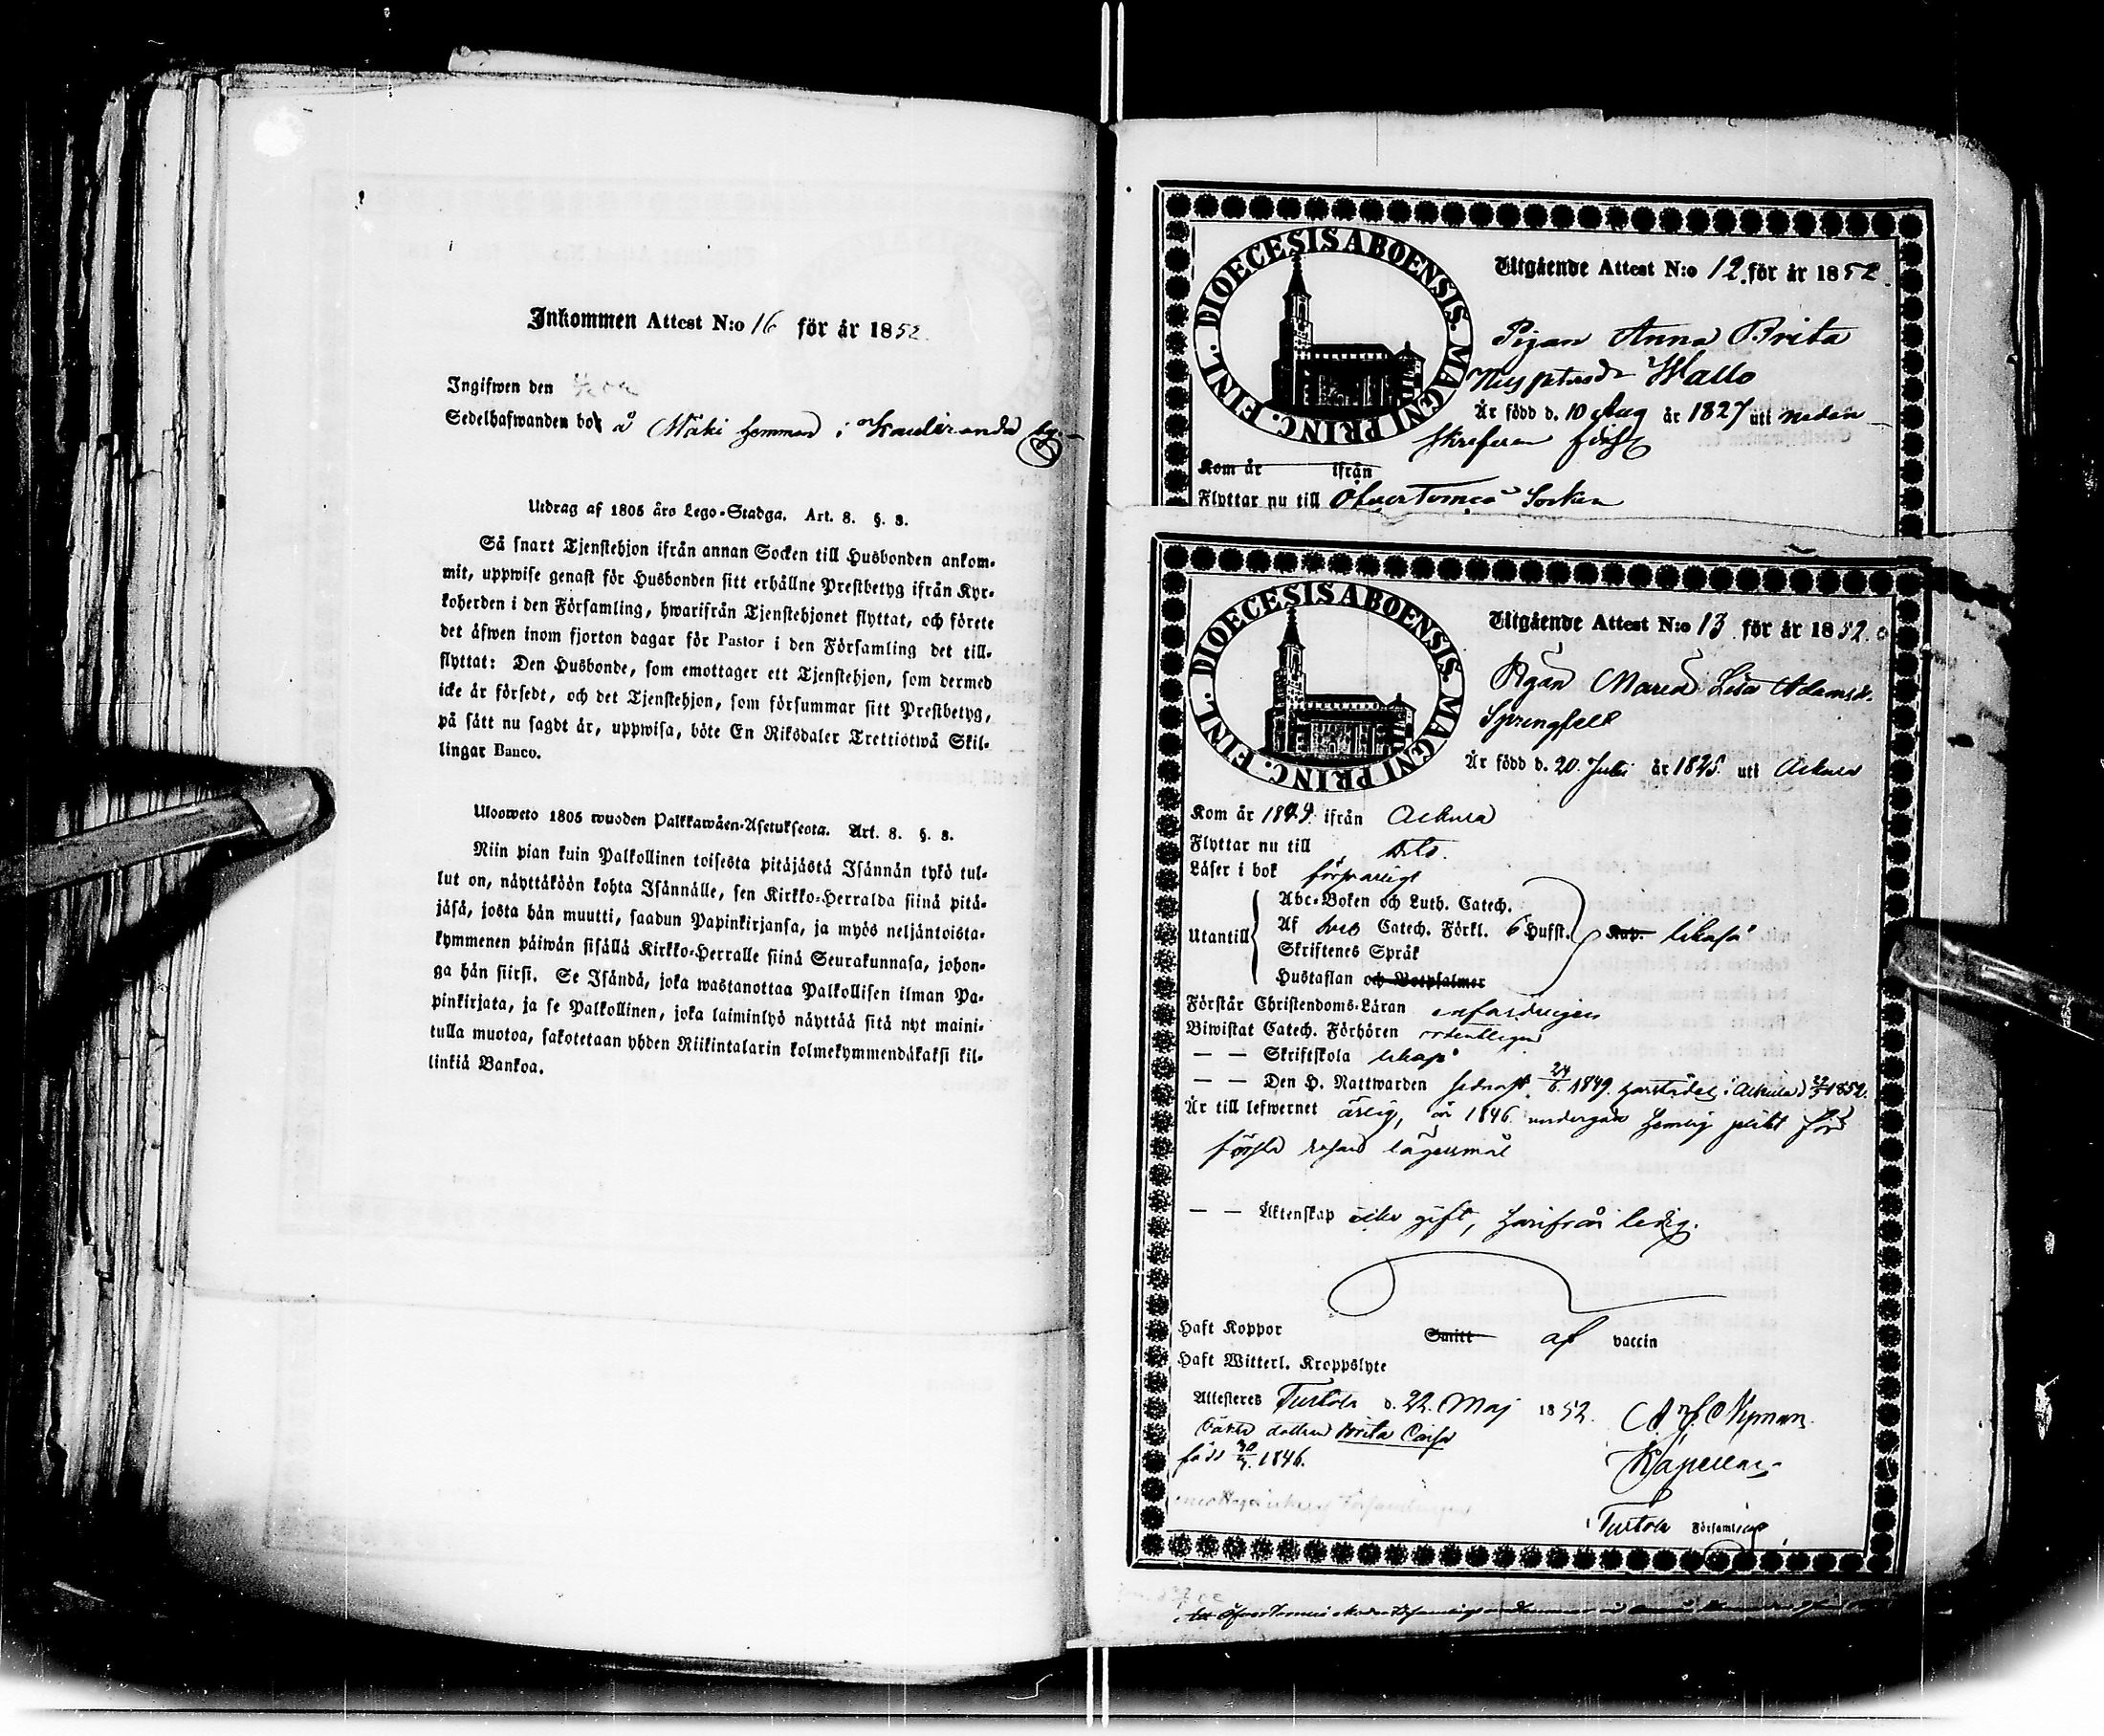 Inkommen Attest N:o 16 för år 1852.
Ingifwen den
Sedelhafwanden bor å Mäki hemman i Kauliranda by
Utdrag af 1805 års Lego-Stadga. Art. 8. §. 3.
Så snart Tjenstehjon ifrån annan Socken till Husbonden ankom-
mit, uppwise genast för Husbonden sitt erhållne Prestbetyg ifrån Kyr-
koherden i den Församling, hwarifrån Tjenstehjonet flyttat, och förete
det äfwen inom fjorton dagar för Pastor i den Församling det till-
flyttat: Den Husbonde, som emottager ett Tjenstehjon, som dermed
icke är försedt, och det Tjenstehjon, som försummar sitt Prestbetyg,
på sätt nu sagdt är, uppwisa, böte En Riksdaler Trettiotwå Skil-
lingar Banco.
Ulosweto 1805 wuoden Palkkawäen-Asetuksesta. Art. 8. §. 3.
Niin pian kuin Palkollinen toisesta pitäjästä Isännän tykö tul-
lut on, näyttäköön kohta Isännälle, sen Kirkko-Herralda siinä pitä-
jäsä, josta hän muutti, saadun Papinkirjansa, ja myös neljäntoista-
kymmenen päiwän sisällä Kirkko-Herralle siinä Seurakunnasa, johon-
ga hän siirsi. Se Isändä, joka wastanottaa Palkollisen ilman Pa-
pinkirjata, ja se Palkollinen, joka laiminlyö näyttää sitä nyt maini-
tulla muotoa, sakotetaan yhden Riikintalarin kolmekymmendäkaksi kil-
linkiä Bankoa.
DIOECESIS ABOENSIS. MAGNI PRINC. FINL.
Utgående Attest N:o 12. för år 1852.
Pigan Anna Brita
Wallo
Är född d. 10 Aug år 1827 uti nedan-
skrefven förs
Kom år ifrån
Flyttar nu till Öfver Torneå Socken
DIOECESIS ABOENSIS. MAGNI PRINC. FINL.
Utgående Attest N:o 13 för år 1852.
Pigan Maria Lisa Adamsdr
Springfelt
Är född d. 20. Juli år uti
Kom år 1844 ifrån
Flyttar nu till Dito.
Läser i bok försvarligt
Utantill
Abc-Boken och Luth. Catech.
Af Catech. Förkl. 6 Hufst. Kap. likaså
Skriftenes Språk
Hustaflan och Botpsalmer
Förstår Christendoms-Läran enfaldigen
Biwistat Catech. Förhören ordentligen
— — Skriftskola likaså
— — Den H. Nattwarden sednast 24/6 1849. härstädes, i 1852.
Är till lefwernet ärlig, år 1846 undergått hemlig plikt för
första resans lägersmål
— — Äktenskap icke gift, härifrån ledig.
Haft Koppor Smitt af vaccin
Haft Witterl. Kroppslyte
Attesteres Turtola d. 22. Maj 1852.
Oäkta dottren Brita Caisa
född 30/7. 1846.
Nyman
Kapellan
i Turtola Församling